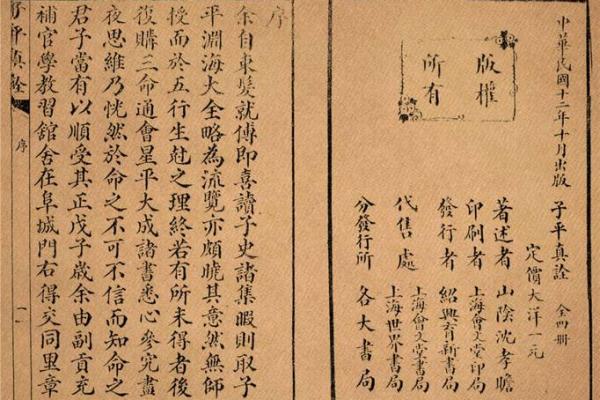 中華民國十二年十月出版
子平真詮 全四冊
定價大洋一元
版權
所有
著述者 山陰沈孝瞻
印刷者 上海會文堂印局
發行者 紹興育新書局
代售處 上海會文堂書局
上海世界書局
分發行所 各大書局
序
余自束髮就傅即喜讀子史諸集暇則取子
平淵海大全略為流覽亦頗曉其意然無師
授而於五行生尅之理終若有所未得者後
復購三命通會星平大成諸書悉心參究晝
夜思維乃恍然於命之不可不信而知命之
君子當有以順受其正戊子歲余由副貢充
補官學教習舘舍在阜城門右得交同里章
子平真詮 序 一